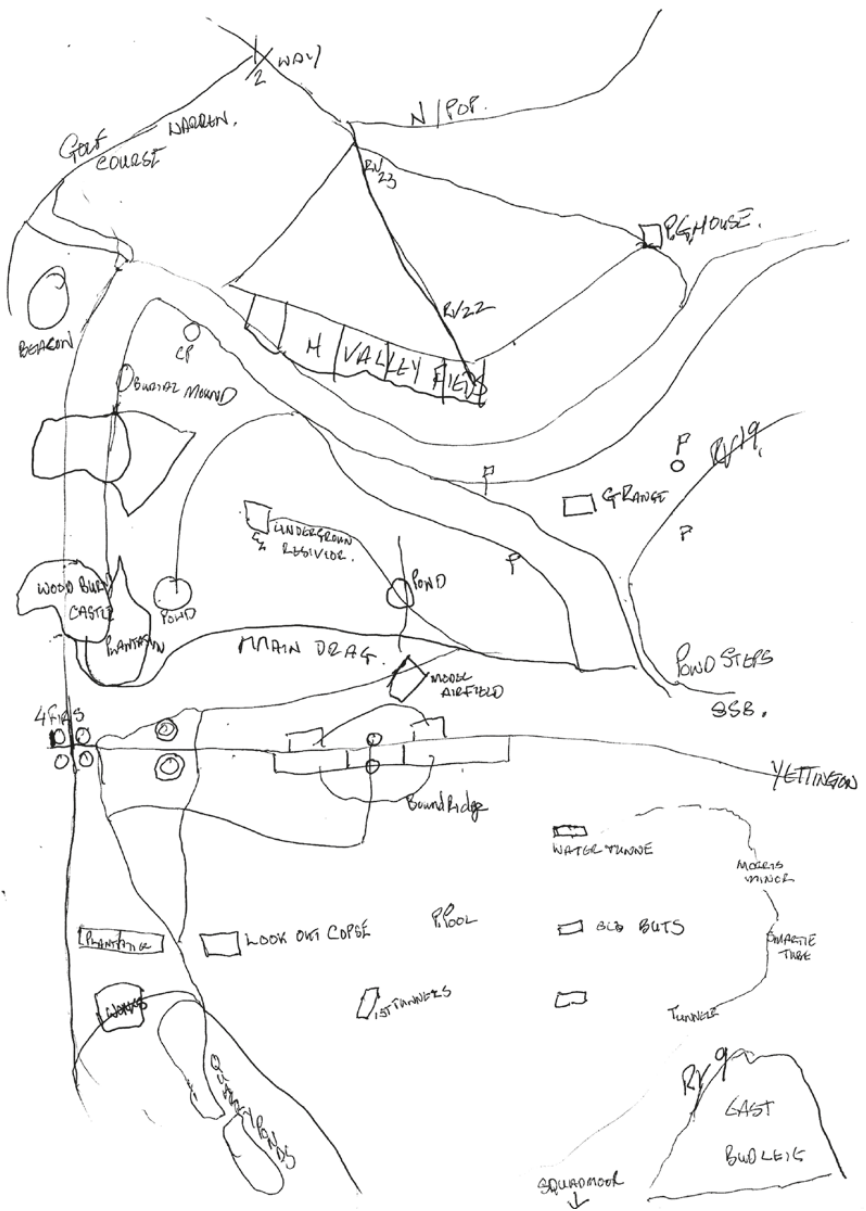 1/2 WAY
N/POP.
GOLF
COURSE
WARREN.
RV
23
P.G.HOUSE.
BEACON
CP
RV22
H VALLEY FIELDS
BURIAL MOUND
P
RV19.
P
GRANGE
UNDERGROWN
RESIVIOR.
P
P
WOOD BURY
CASTLE
POND
POND
PLANTASUN
MAIN DRAG.
MODEL
AIRFIELD
POND STEPS
SSB.
4 FIRS
YETTINGTON
Bound Ridge
WATER TUNNE
MORRIS
MINOR
LOOK OUT COPSE
P.POOL
OLD BUTS
SMARTIE
TUBE
WORKS
1ST TUNNERS
TUNNER
QUARRY PONDS
RV9
EAST
BUDLEIG
SQUADMOOR